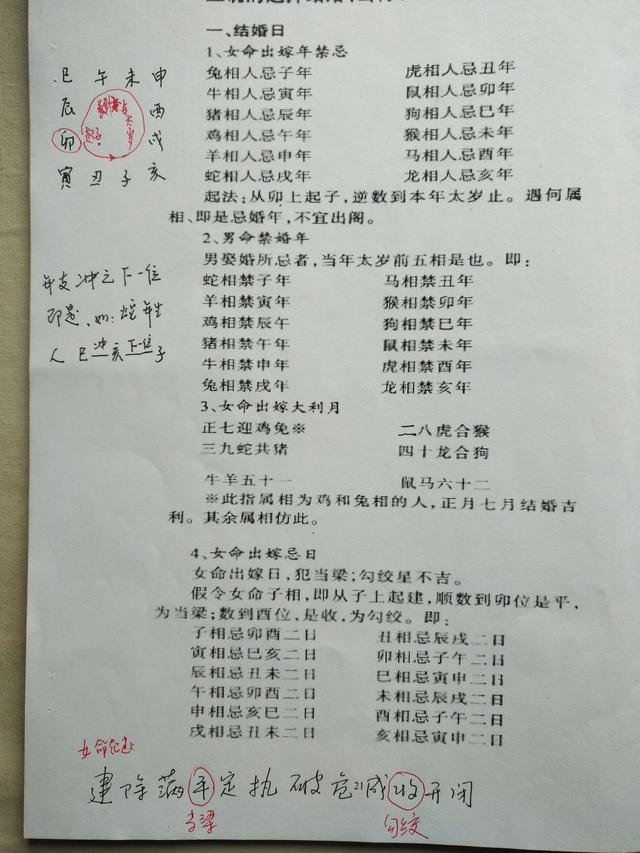 一、结婚日
1、女命出嫁年禁忌
兔相人忌子年 虎相人忌丑年
牛相人忌寅年 鼠相人忌卯年
猪相人忌辰年 狗相人忌巳年
鸡相人忌午年 猴相人忌未年
羊相人忌申年 马相人忌酉年
蛇相人忌戌年 龙相人忌亥年
起法:从卯上起子,逆数到本年太岁止。遇何属
相、即是忌婚年,不宜出阁。
巳 午 未 申
辰 酉
卯 戌
寅 丑 子 亥
2、男命禁婚年
男娶婚所忌者,当年太岁前五相是也。即:
蛇相禁子年 马相禁丑年
羊相禁寅年 猴相禁卯年
鸡相禁辰午 狗相禁巳年
猪相禁午年 鼠相禁未年
牛相禁申年 虎相禁酉年
兔相禁戌年 龙相禁亥年
年支冲之下一位
即是、如:蛇年生
人 巳冲亥下一位子
3、女命出嫁大利月
正七迎鸡兔※ 二八虎合猴
三九蛇共猪 四十龙合狗
牛羊五十一 鼠马六十二
※此指属相为鸡和兔相的人,正月七月结婚吉
利。其余属相仿此。
4、女命出嫁忌日
女命出嫁日,犯当梁;勾绞星不吉。
假令女命子相,即从子上起建,顺数到卯位是平,
为当梁;数到酉位,是收,为勾绞。即:
子相忌卯酉二日 丑相忌辰戌二日
寅相忌巳亥二日 卯相忌子午二日
辰相忌丑未二日 巳相忌寅申二日
午相忌卯酉二日 未相忌辰戌二日
申相忌亥巳二日 酉相忌子午二日
戌相忌丑未二日 亥相忌寅申二日
女命起建
建除满平定执破危成收开闭
当梁 勾绞